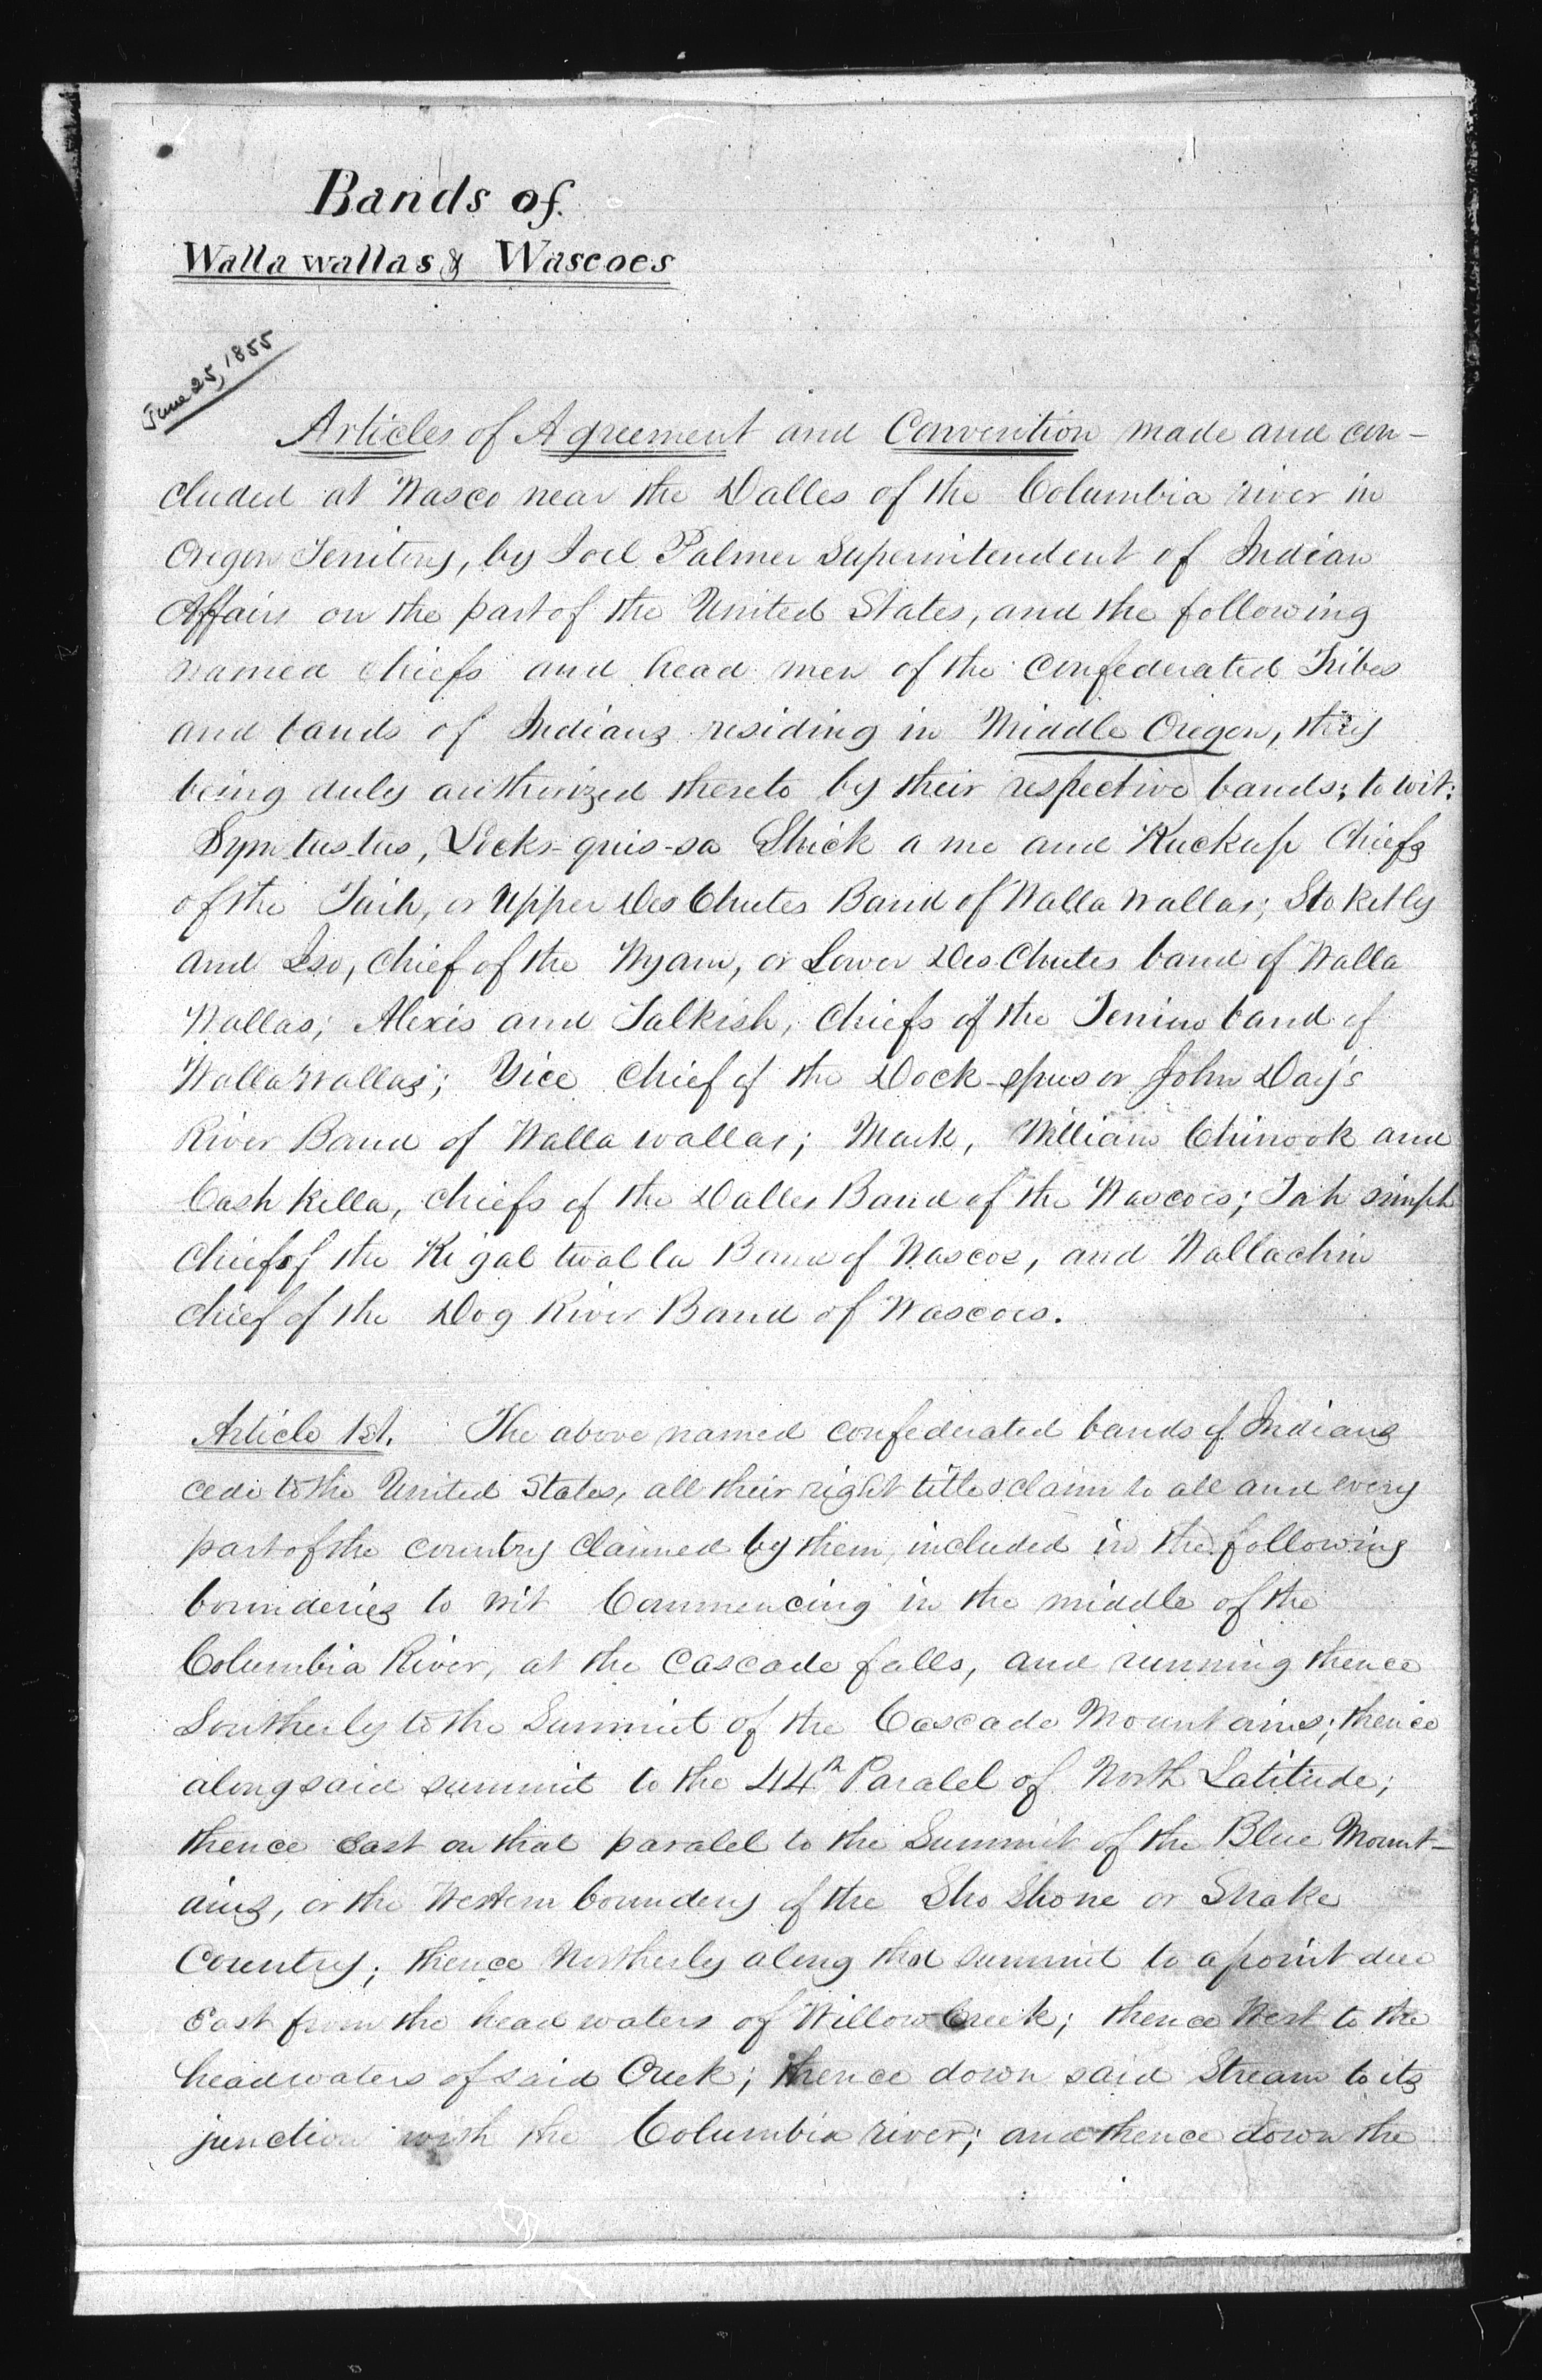 Bands of
Walla wallas & Wascoes
June 25, 1855
Articles of Agreement and Convention made and con-
cluded at Wasco near the Dalles of the Columbia river in
Oregon Territory, by Joel Palmer Superintendent of Indian
Affairs on the part of the United States, and the following
named chiefs and head men of the confederated Tribes
and bands of Indians residing in Middle Oregon, they
being duly authorized thereto by their respective bands; to wit:
Symtustus, Locks-quis-sa Shick a me and Kuckup Chiefs
of the Taih, or Upper Des Chutes Band of Walla wallas; Stoketly
and Iso, chief of the Wyam, or Lower Des Chutes band of Walla
Wallas; Alexis and Talkish, Chiefs of the Tenino band of
Walla Wallas; Yice Chief of the Dock-spus or John Day's
River Band of Walla wallas; Mark, William Chinook and
Cash Kella, chiefs of the Dalles Band of the Wascoes; Tah simph
Chief of the Ki gal twal la Band of Wascoe, and Wallachin
chief of the Dog River Band of Wascoes.
Article 1st. The above named confederated bands of Indians
cede to the United States, all their right title & claim to all and every
part of the country claimed by them, included in the following
bounderies to wit Commencing in the middle of the
Columbia River, at the Cascade falls, and running thence
Southerly to the Summit of the Cascade Mountains; thence
along said summit to the 44th Paralel of North Latitude;
thence East on that paralel to the Summit of the Blue Mount-
ains, or the Western boundery of the Sho Shone or Snake
Country; thence Northerly along that summit to a point due
East from the head waters of Willow Creek; thence West to the
headwaters of said Creek; thence down said Stream to its
junction with the Columbia river; and thence down the